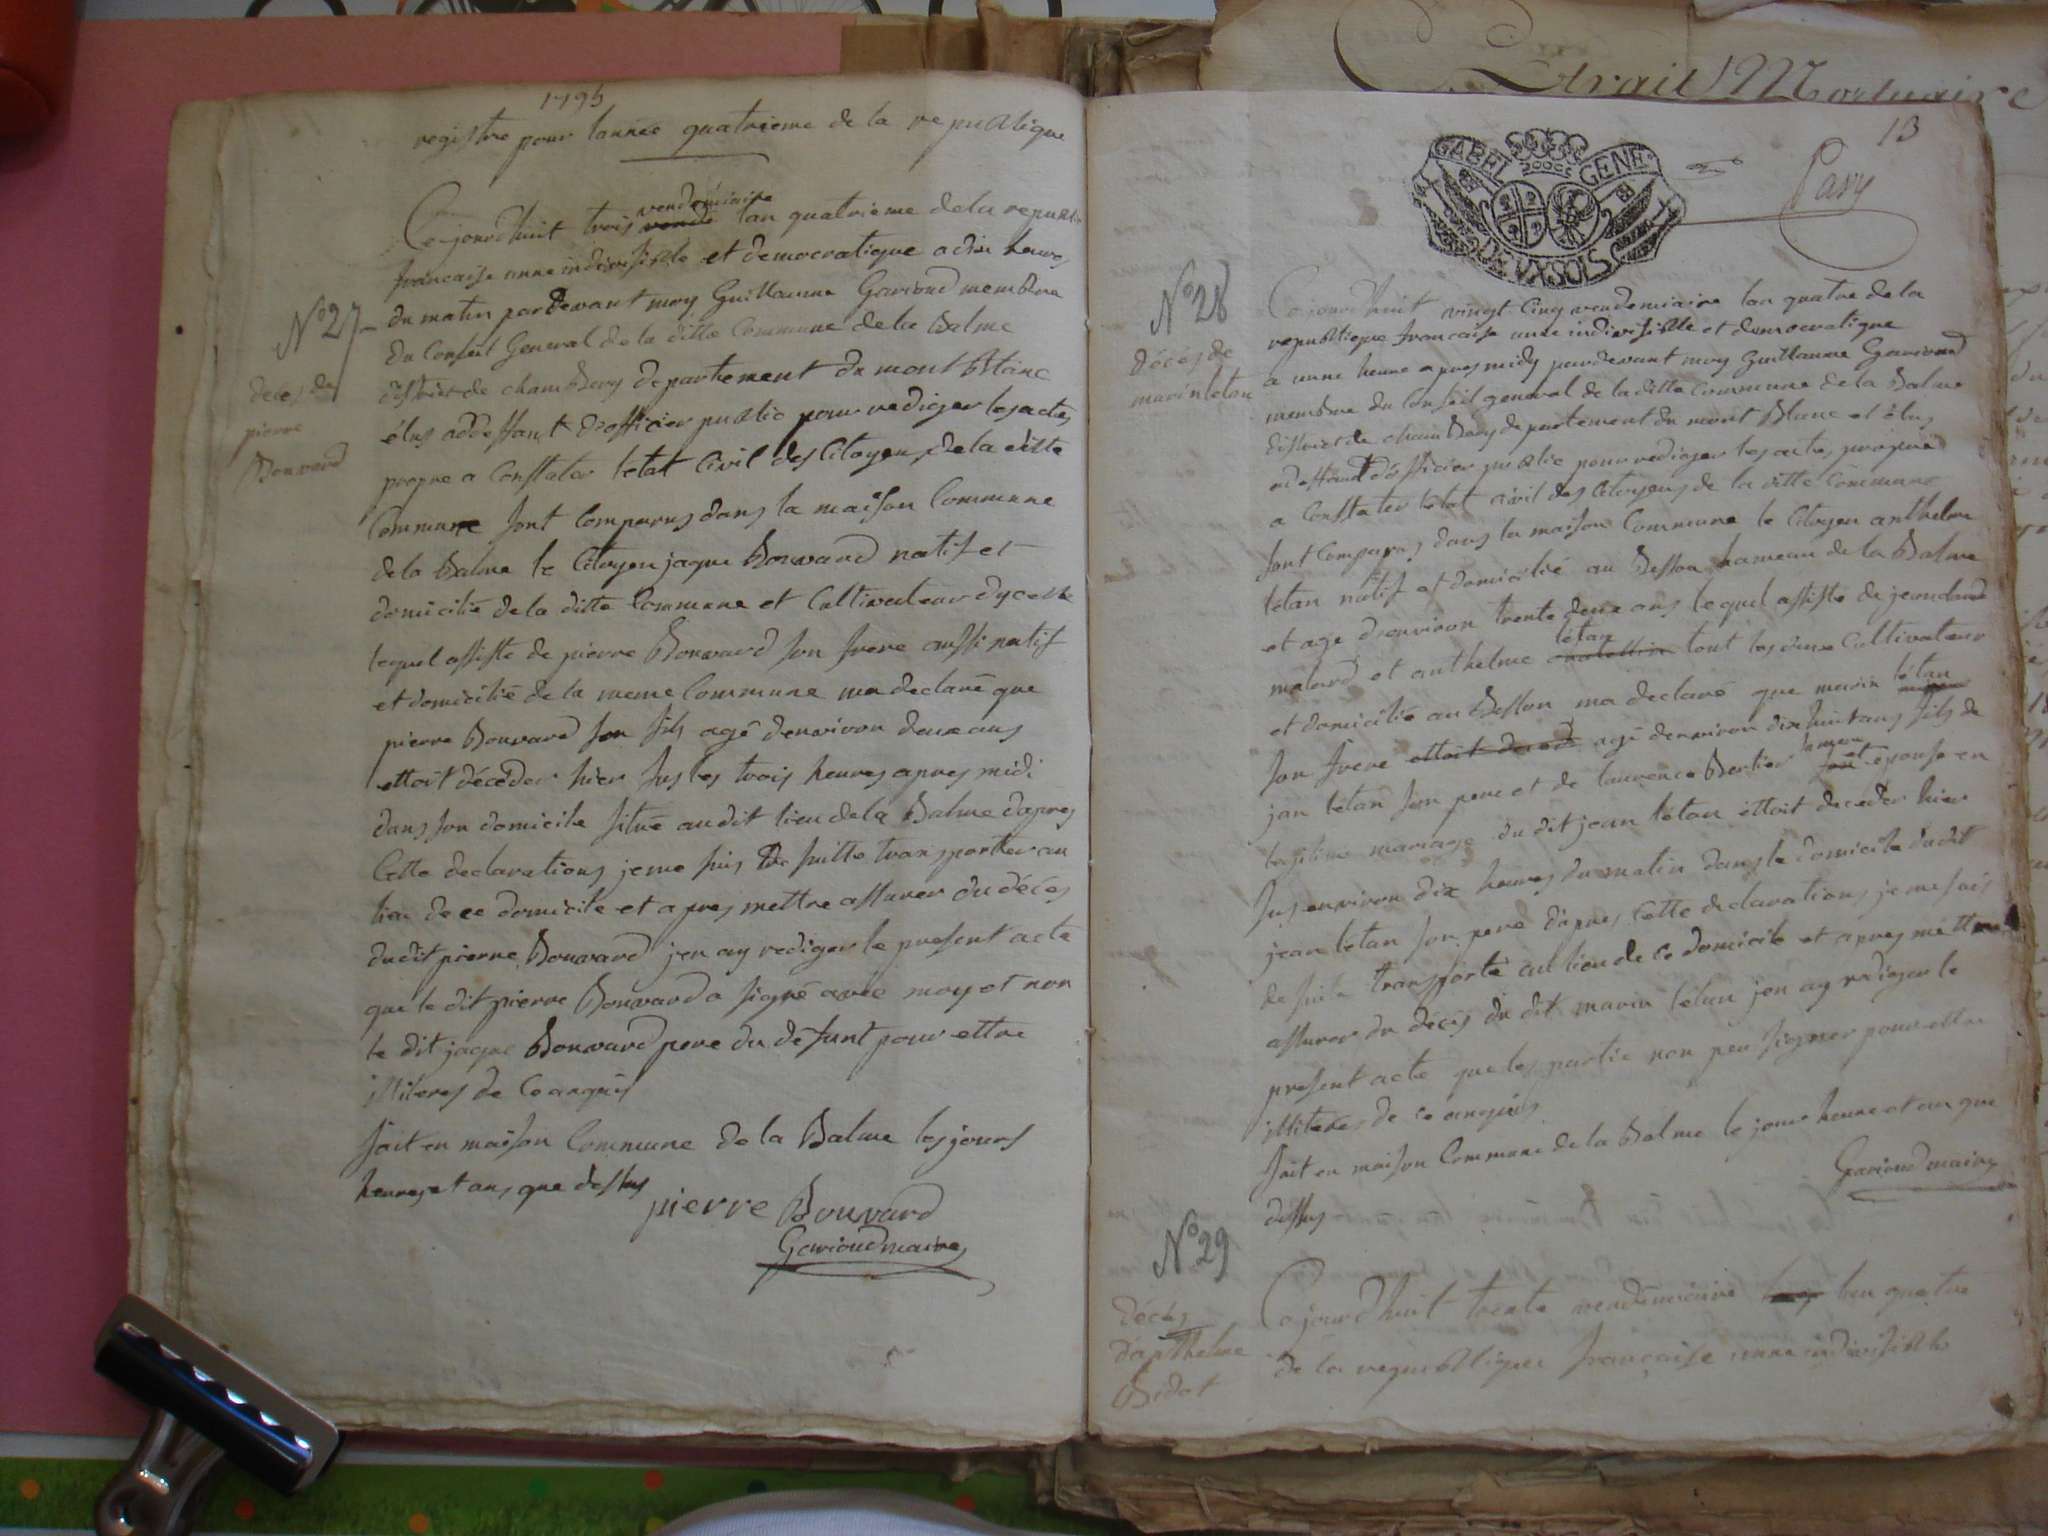 1795
registre pour lannee quatrieme de la republique
Cejourdhuit trois vende vendémiaire lan quatrieme dela republi
francaise unne indivisible et democratique a dix heures
du matin pardevant moy Guillaume Gariond membre
du Conseil General de la ditte Commune de la Balme
district de chambery departement du mont blanc
élus addessant dofficier public pour rediger les actes
propre a Constater letat Civil des Citoyens de la ditte
Commune sont Comparus dans la maison Commune
de la Balme le Citoyen jaque Bouvard natif et
domicilié de la ditte Commune et Cultivateur dycelle
lequel assisté de pierre Bouvard son frere aussi natif
et domicilié de la meme Commune ma declaré que
pierre Bouvard son fils agé denviron deux ans
ettoit décéder hier sus les trois heures apres midi
dans son domicile situé audit lieu de la Balme dapres
Cette declarations je me suis de suitte transporter au
lieu de ce domicile et apres mettre assurer du décés
dudit pierre Bouvard jen ay rediger le present acte
que le dit pierre Bouvard a signé avec moy et non
le dit jaque Bouvard pere du défunt pour ettre
illiteres de Ce anquis
fait en maison Commune de la Balme les jours
heures et ans que dessus
pierre Bouvard
Gariond maire
N° 27
deces de
pierre
Bouvard
Extrait Mortuaire
13
GABEL GENE
DEUX SOLS
N° 28
décès de
marin létan
Cejourdhuit vingt Cinq vendemiaire lan quatre de la
republique francaise unne indivisible et democratique
a unne heure apres midy pardevant moy Guillaume Gariond
membre du Conseil general de la ditte Commune de la Balme
district de chambery departement du mont Blanc et élus
adessant dofficier public pour rediger les actes propre
a Constater letat civil des Citoyens de la ditte Commune
sont Comparus dans la maison Commune le Citoyen anthelme
létan natif et domicilié au Besson hameau de la Balme
et agé denviron trente deux ans lequel assisté de jeandred
molard et anthelme létan tout les deux Cultivateur
et domicilié au Besson ma declaré que marin létan
son frere ettoit decedé agé denviron dix huit ans fils de
jan létan son pere et de laurence Bertier sa mere et épouse en
legitime mariage du dit jean létan éttoit deceder hier
sus environ dix heures du matin dans le domicile dudit
jean létan son pere dapres Cette declarations je me suis
de suite transporté au lieu de ce domicile et apres mettre
assurer du décés du dit marin létan jen ay rediger le
present acte que les partie non peu signer pour ettre
illiteres de ce anquis
fait en maison Commune de la Balme le jour heure et an que
dessus
Gariond maire
N° 29
décès
danthelme
Bidat
Cejourdhuit trente vendemiaire lan quatre
de la republique française unne indivisible